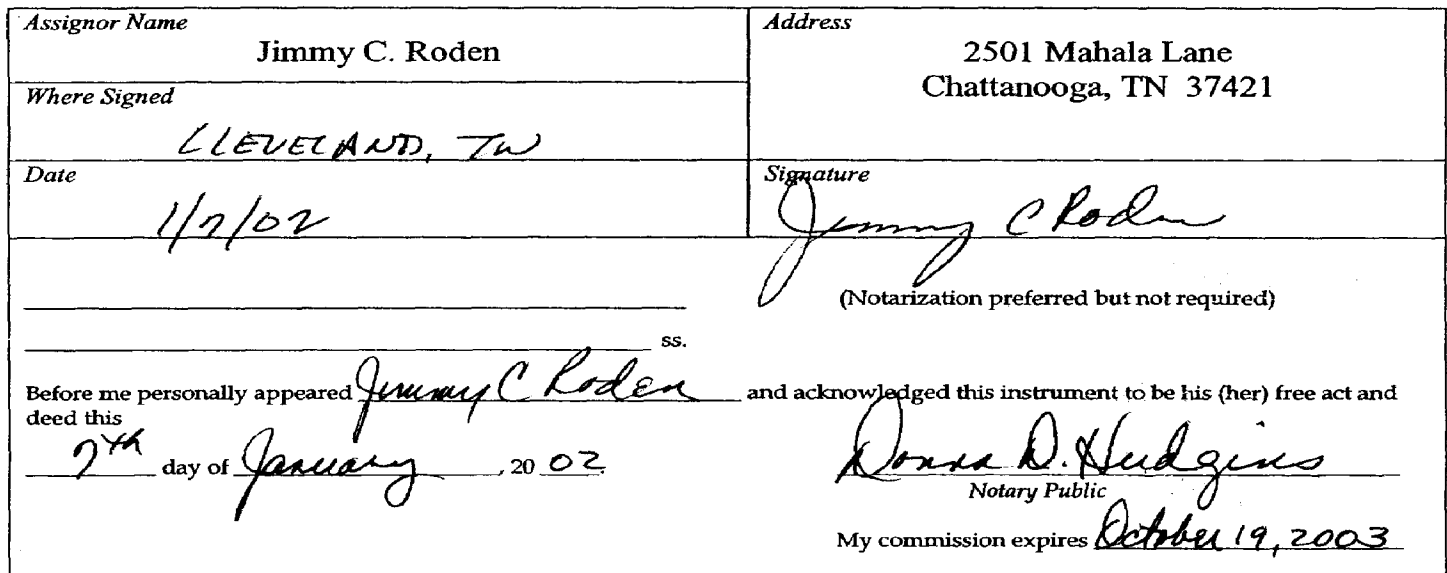 Assignor Name
Jimmy C. Roden
Address
2501 Mahala Lane
Chattanooga, TN 37421
Where Signed
CLEVELAND, TN
Date
1/7/02
Signature
Jimmy C Roden
(Notarization preferred but not required)
ss.
Before me personally appeared Jimmy C Roden and acknowledged this instrument to be his (her) free act and
deed this
7th day of January, 20 02.
Donna D. Hudgins
Notary Public
My commission expires October 19, 2003